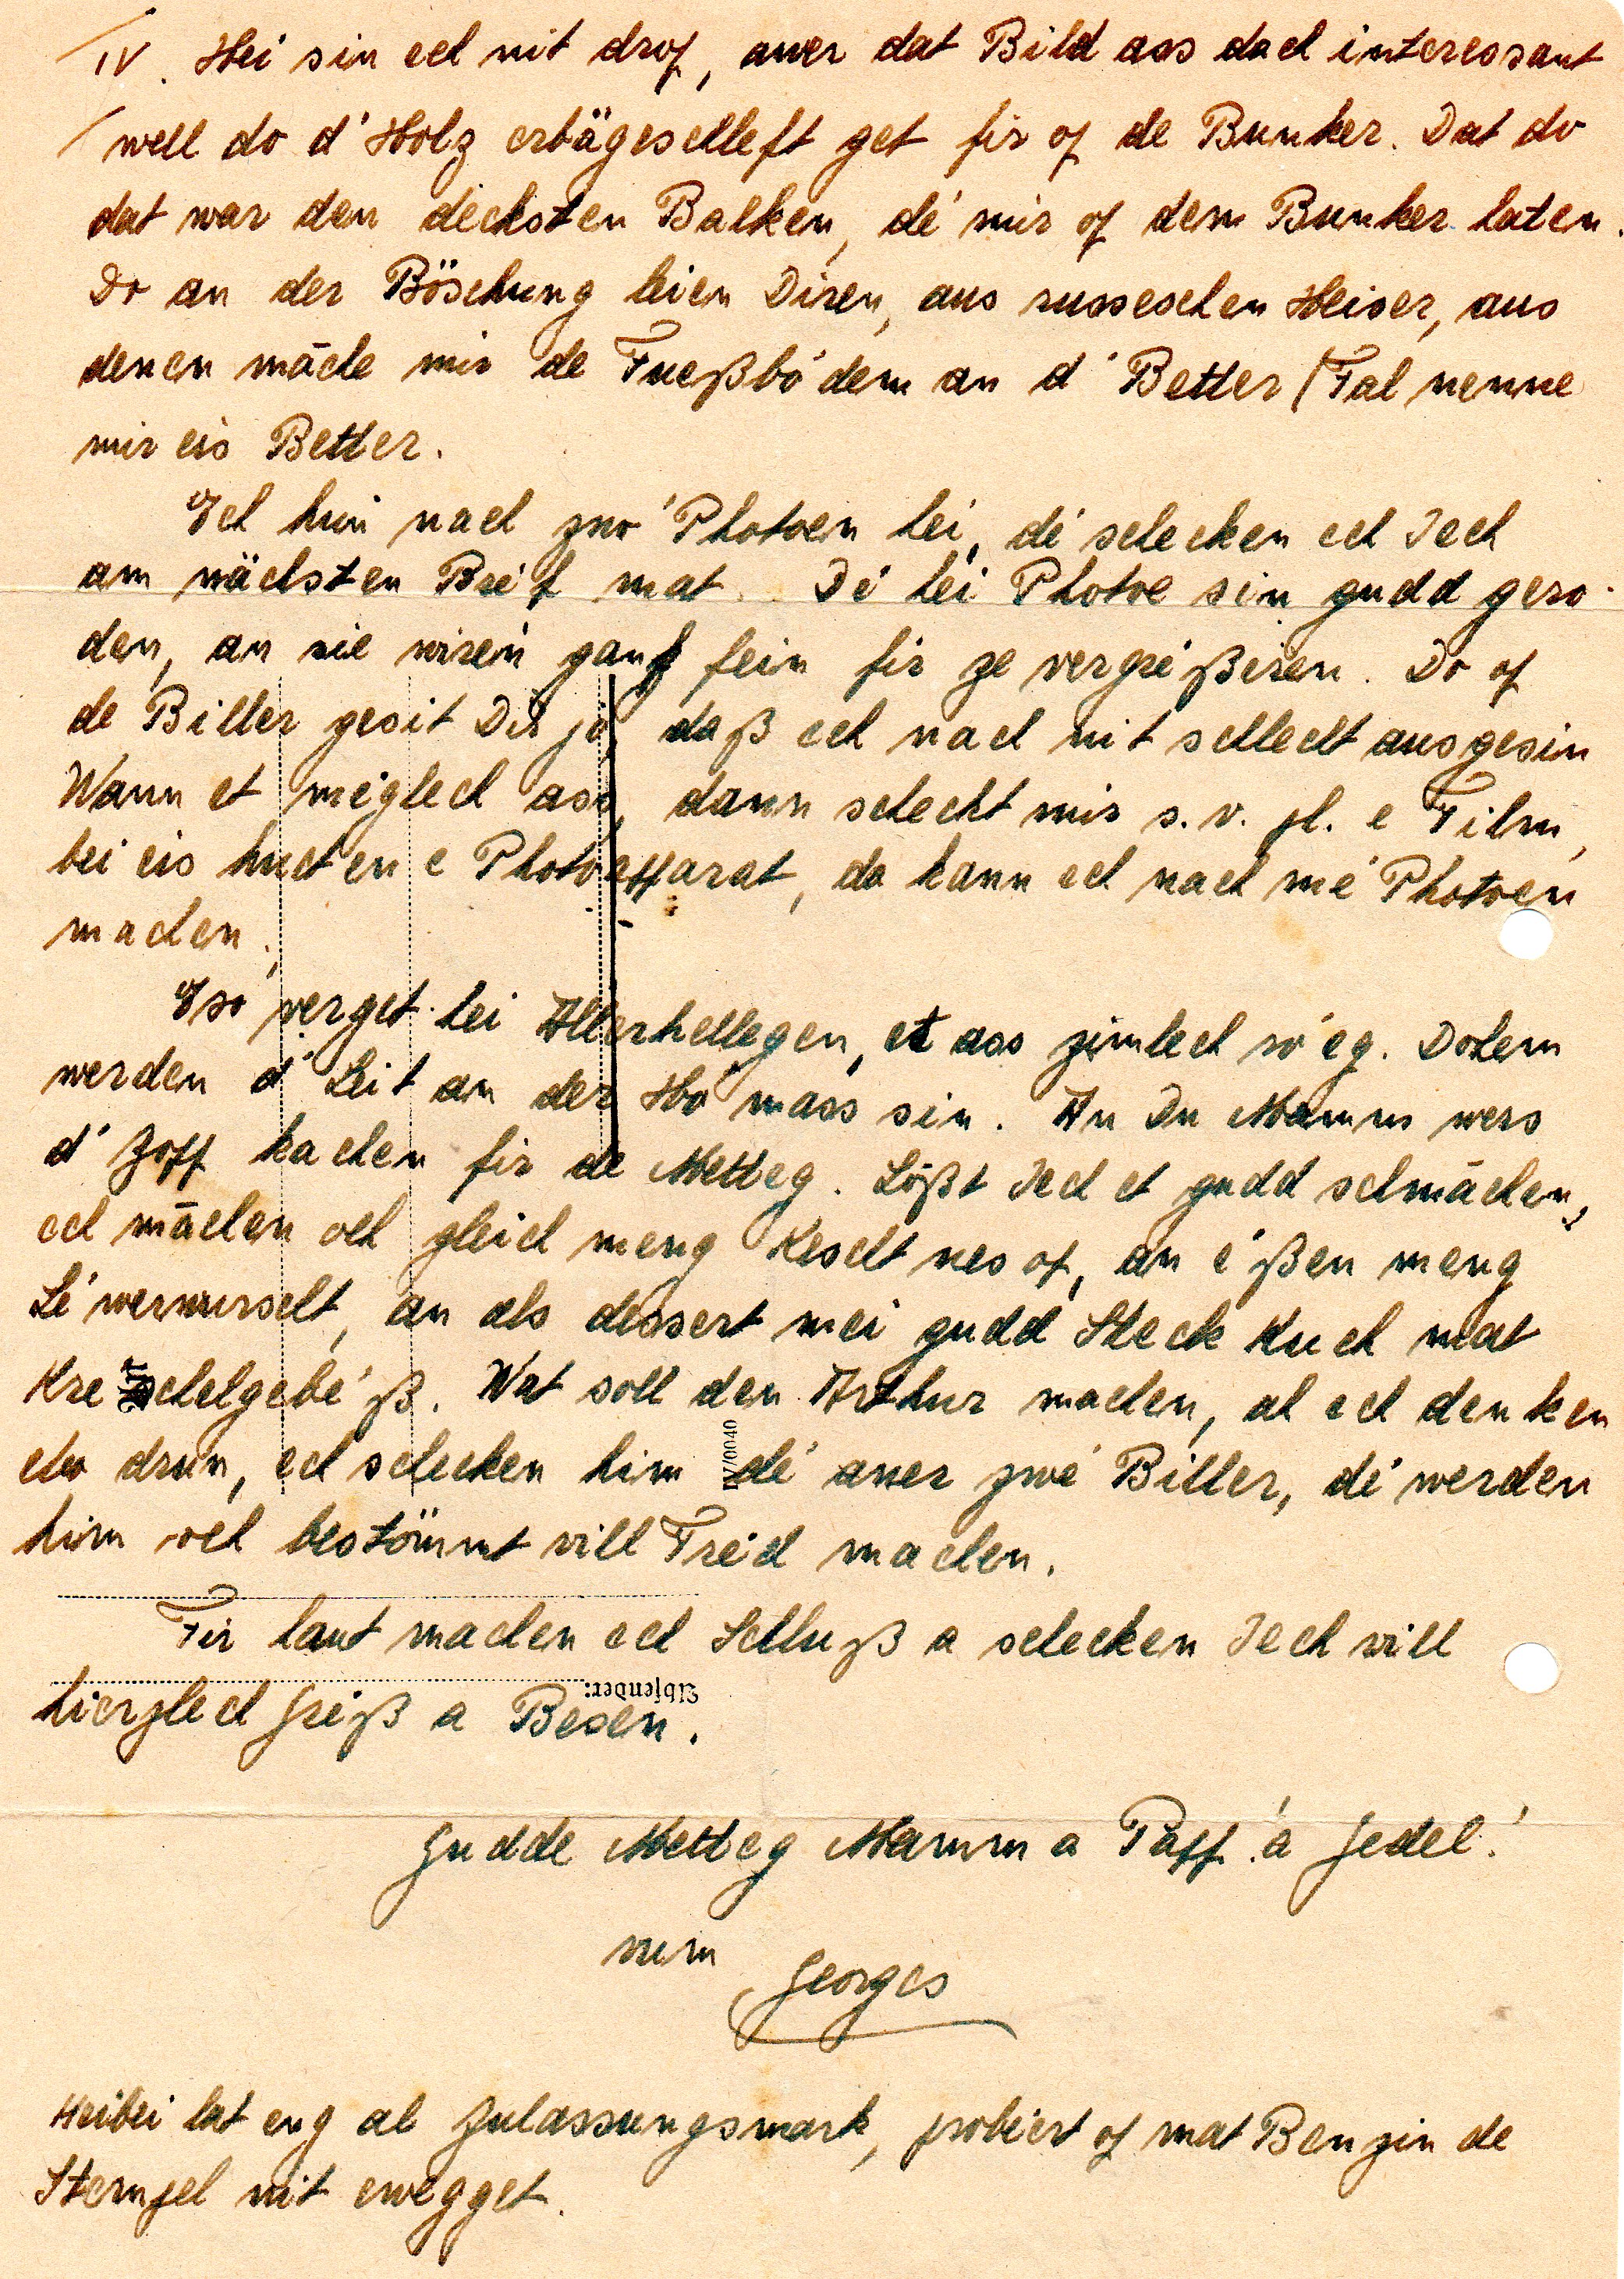 IV. Hei sin ech nit drop, awer dat Bild ass dach interessant
well do d'Holz erbägeschleft get fir op de Bunker. Dat do
dat war den décksten Balken, dé mir op dem Bunker haten.
Do an der Böschung leien Diren, aus russeschen Heiser, aus
denen mäche mir de Fueßbó'dem an d'Better (Fal nenne
mir eis Better.
Ech hun nach zwo' Photoen hei, dé schecken ech Iech
am nächsten Bréf mat. Dé héi Photoe sin gudd gero-
den, an sie wiren ganz fein fir ze vergréßeren. Do op
de Biller gesit Dir jo, daß ech nach nit schlecht ausgesin
Wann et méglech ass, dann scheckt mir s. v. pl. e Film,
bei eis huet en e Photoapparat, da kann ech nach mé Photoen
machen.
Eso' verget hei Allerhellegen, et ass zimlech ro'eg. Dohem
werden d'Leit an der Ho'mass sin. An Du Mamm wers
d'Zopp kachen fir de Metteg. Lößt Iech et gudd schmächen,
ech mächen och gleich meng Kescht nes op, an é'ßen meng
Lé'werwurscht, an als dessert mei gudd Steck Kuch mat
Kréschelgebé'ß. Wat soll den Arthur machen, al ech denken
elo drun, ech schecken him dé aner zwé Biller, dé werden
him och bestömmt vill Fréd machen.
Fir haut machen ech Schluß a schecken Iech vill
herzlech Gréiß a Besen.
Absender:
IV/0040
Gudde Metteg Mamm a Papp a' Jedel!
vum
Georges
Heibei hat eng al Zulassungsmark, probiert op mat Benzin de
Stempel nit ewegget.